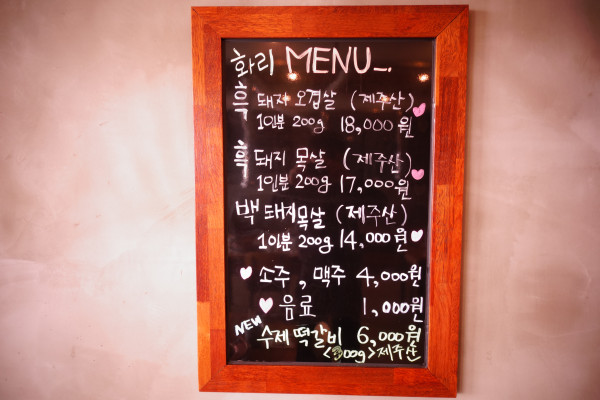 화리 MENU
흑 돼지 오겹살 (제주산)
1인분 200g 18,000원
흑 돼지 목살 (제주산)
1인분 200g 17,000원
백 돼지목살 (제주산)
1인분 200g 14,000원
소주, 맥주 4,000원
음료 1,000원
NEW 수제 떡갈비 6,000원
제주산